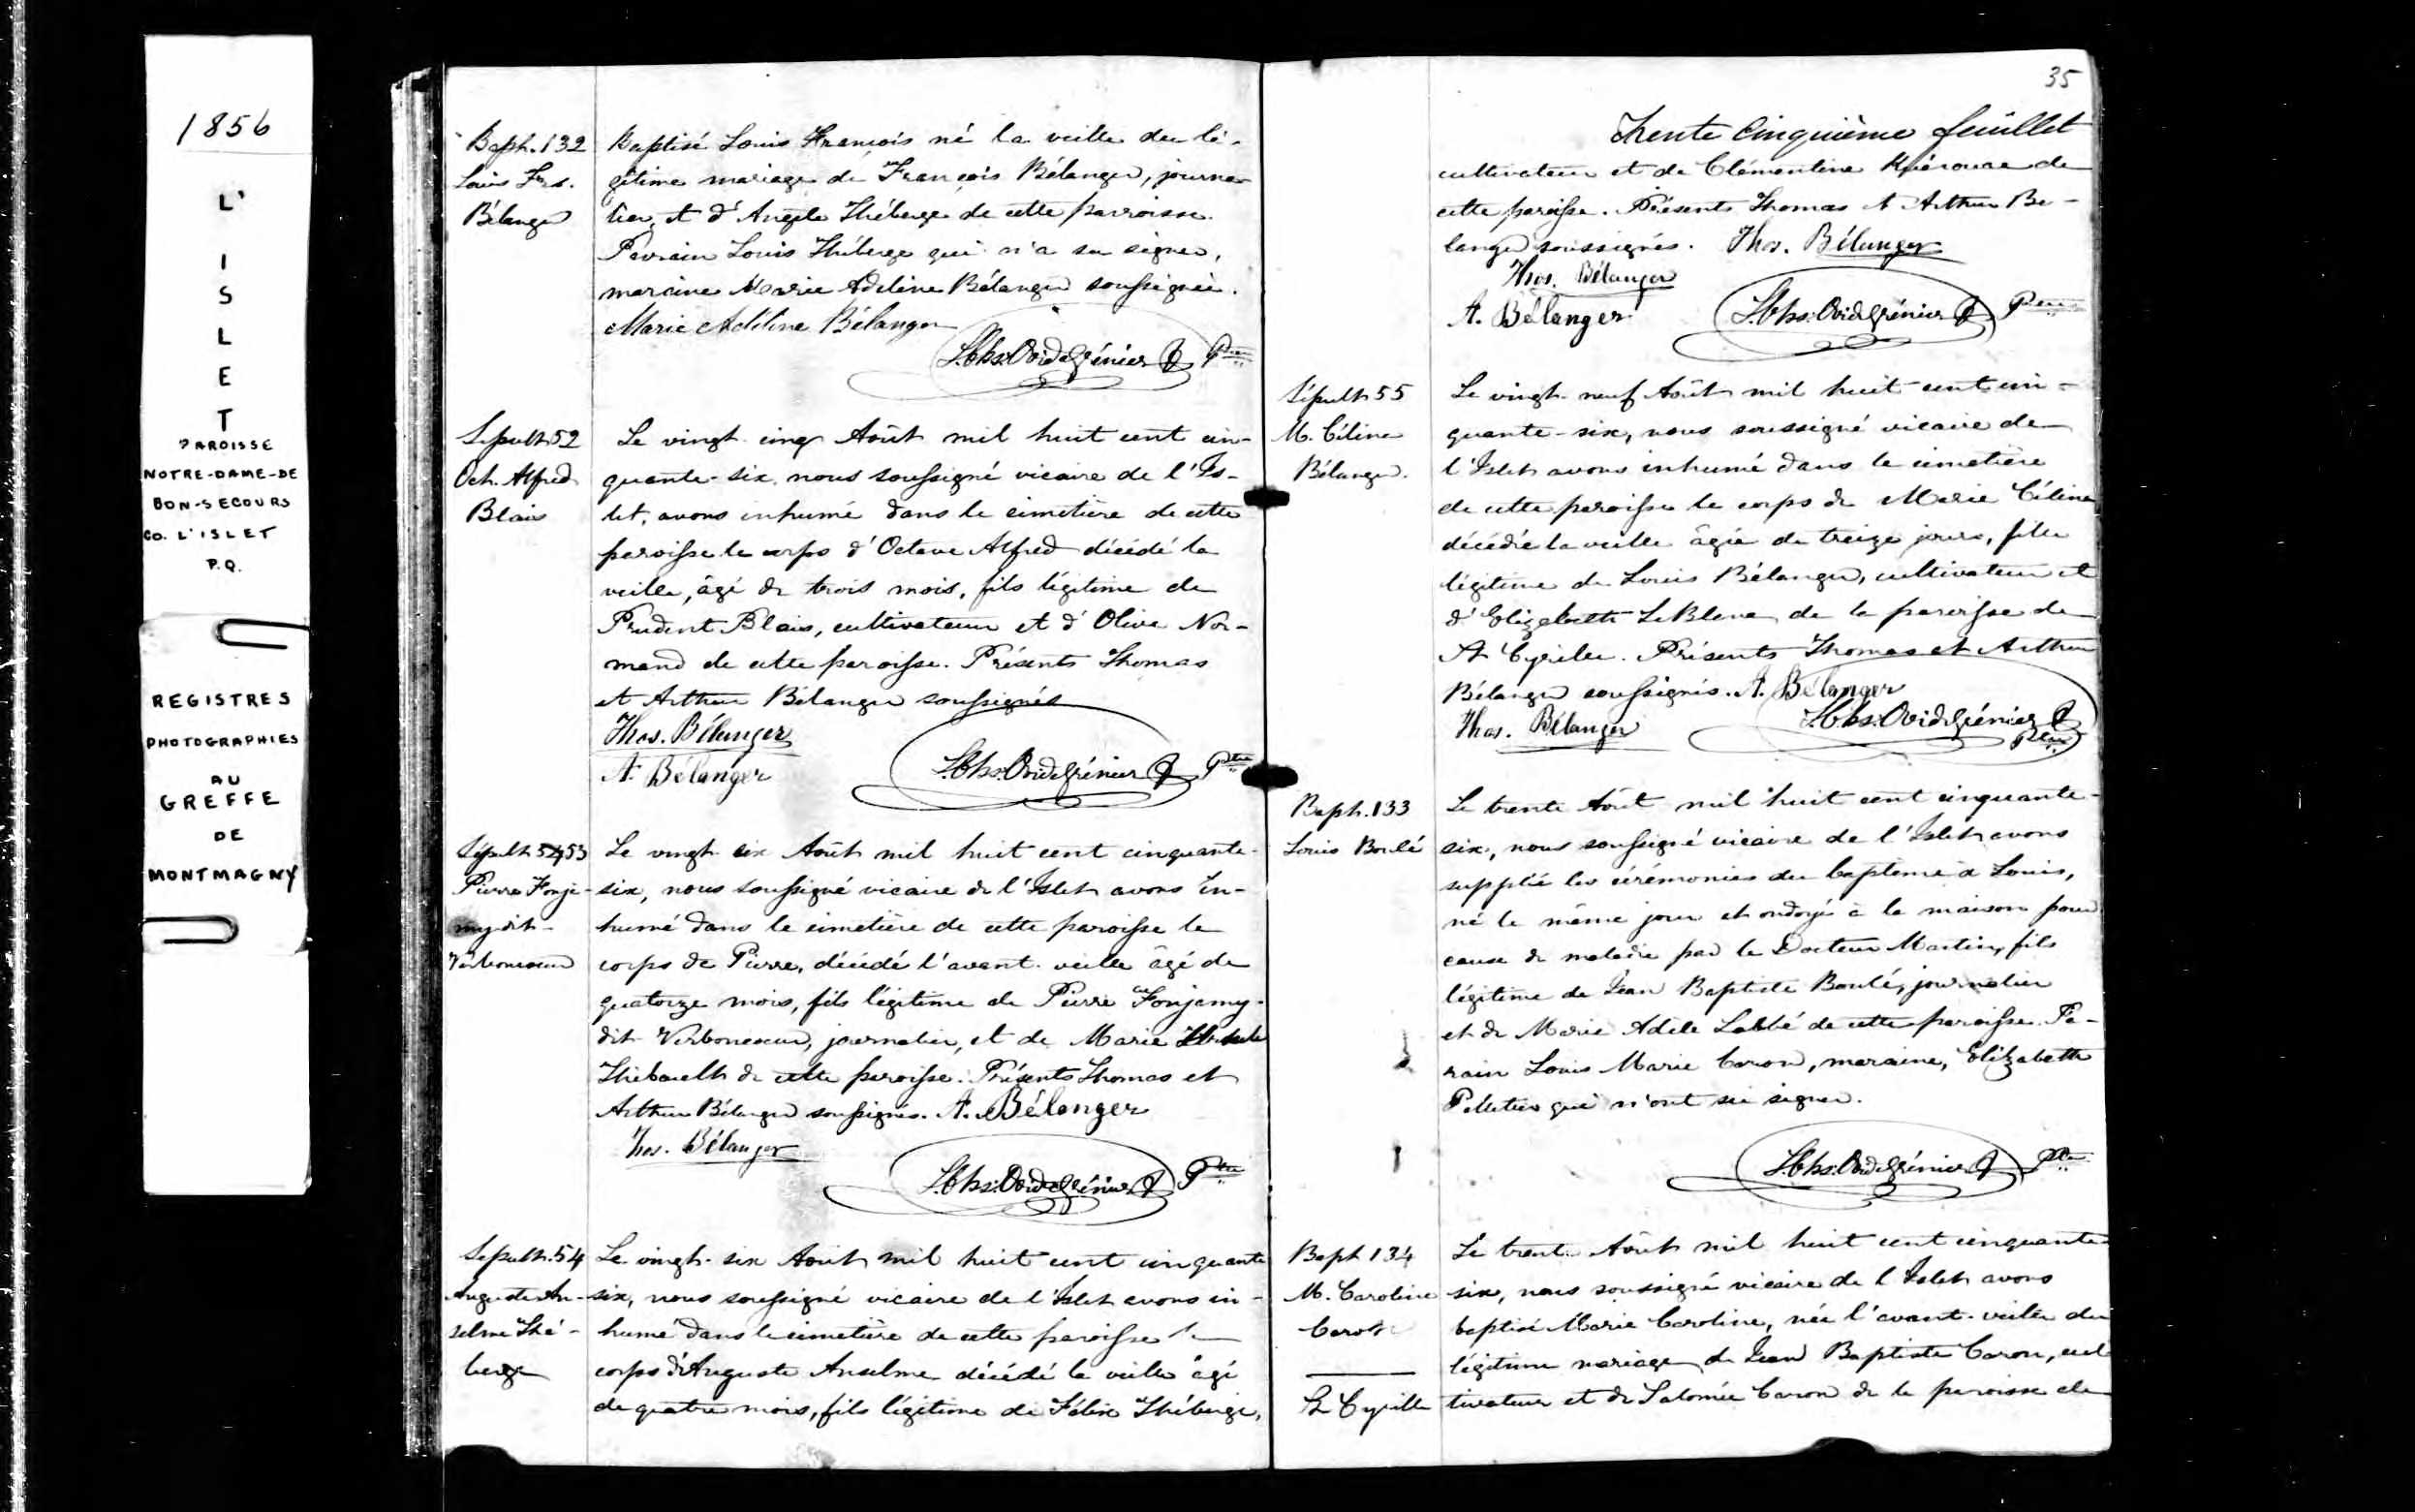 1856
L'
I
S
L
E
T
PAROISSE
NOTRE-DAME-DE
BON-SECOURS
CO. L'ISLET
P.Q.
REGISTRES
PHOTOGRAPHIES
AU
GREFFE
DE
MONTMAGNY
Bapt. 132
Louis Frs.
Bélanger
Baptisé Louis François né la veille du lé-
gitime mariage de François Bélanger, journa-
lier, et d'Angèle Théberge de cette parroisse.
Parrain Louis Théberge qui n'a su signer,
maraine Marie Adeline Bélanger soussignée.
Marie Adeline Bélanger
L. Chs. Ovide Grénier Ptre
Sépult 52
Oct. Alfred
Blais
Le vingt cinq Août mil huit cent cin-
quante-six, nous soussigné vicaire de l'Is-
let, avons inhumé dans le cimetière de cette
paroisse le corps d'Octave Alfred décédé la
veille, âgé de trois mois, fils légitime de
Prudent Blais, cultivateur et d'Olive Nor-
mand de cette paroisse. Présents Thomas
et Arthur Bélanger soussignés
Thos. Bélanger
A. Bélanger
L. Chs. Ovide Grénier Ptre
Sépult 53
Pierre Fonja-
my dit
Verboncoeur
Le vingt six Août mil huit cent cinquante-
six, nous soussigné vicaire de l'Islet avons in-
humé dans le cimetière de cette paroisse le
corps de Pierre, décédé l'avant-veille âgé de
quatorze mois, fils légitime de Pierre Fonjamy-
dit Verboncoeur, journalier, et de Marie
Thibault de cette paroisse. Présents Thomas et
Arthur Bélanger soussignés. A. Bélanger
Thos. Bélanger
L. Chs. Ovide Grénier Ptre
Sépult. 54
Auguste An-
selme Thé-
berge
Le vingt-six Août mil huit cent cinquante
six, nous soussigné vicaire de l'Islet avons in-
humé dans le cimetière de cette paroisse le
corps d'Auguste Anselme décédé la veille âgé
de quatre mois, fils légitime de Félix Théberge,
35
Trente Cinquième feuillet
cultivateur et de Clémentine Kuérouac de
cette paroisse. Présents Thomas et Arthur Bé-
langer soussignés. Thos. Bélanger
Thos. Bélanger
A. Bélanger
L. Chs. Ovide Grénier Ptre
Sépult 55
M. Céline
Bélanger.
Le vingt-neuf Août mil huit cent cin-
quante-six, nous soussigné vicaire de
l'Islet avons inhumé dans le cimetière
de cette paroisse le corps de Marie Céline
décédée la veille âgée de treize jours, fille
légitime de Louis Bélanger, cultivateur et
d'Elizabeth LeBlanc de la paroisse de
St Cyrille. Présents Thomas et Arthur
Bélanger soussignés. A. Bélanger
Thos. Bélanger
L. Chs. Ovide Grénier Ptre
Bapt. 133
Louis Boulé
Le trente Août mil huit cent cinquante-
six, nous soussigné vicaire de l'Islet avons
supplié les cérémonies du baptême à Louis,
né le même jour et ondoyé à la maison pour
cause de maladie par le Docteur Martin, fils
légitime de Jean Baptiste Boulé, journalier
et de Marie Adele Labbé de cette paroisse. Pa-
rain Louis Marie Caron, maraine, Elizabeth
Pelletier qui n'ont su signer.
L. Chs. Ovide Grénier Ptre
Bapt 134
M. Caroline
Caron
St Cyrille
Le trente Août mil huit cent cinquante-
six, nous soussigné vicaire de l'Islet avons
baptisé Marie Caroline, née l'avant-veille du
légitime mariage de Jean Baptiste Caron, cul
tivateur et de Salomée Caron de la paroisse de